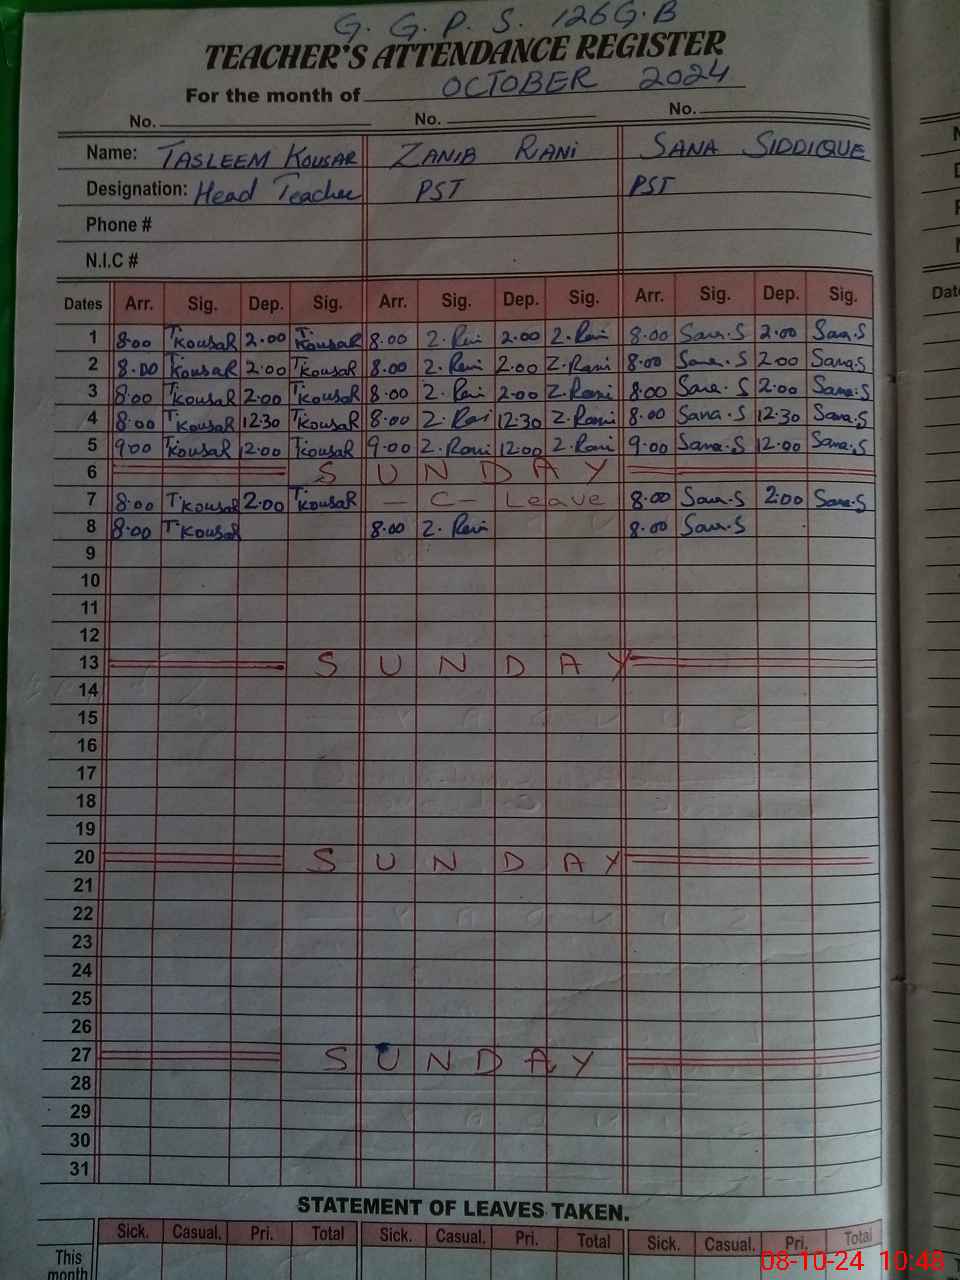 G. G. P. S. 126 G.B
TEACHER'S ATTENDANCE REGISTER
For the month of OCTOBER 2024
No. No. No.
Name: TASLEEM KOUSAR ZANIB RANI SANA SIDDIQUE
Designation: Head Teacher PST PST
Phone #
N.I.C #
Dates Arr. Sig. Dep. Sig. Arr. Sig. Dep. Sig. Arr. Sig. Dep. Sig.
1 8.00 T.KousaR 2.00 T.KousaR 8.00 Z. Rani 2.00 Z. Rani 8.00 Sana.S 2.00 Sana.S
2 8.00 T.KousaR 2.00 T.KousaR 8.00 Z. Rani 2.00 Z. Rani 8.00 Sana.S 2.00 Sana.S
3 8.00 T.KousaR 2.00 T.KousaR 8.00 Z. Rani 2.00 Z. Rani 8.00 Sana.S 2.00 Sana.S
4 8.00 T.KousaR 12.30 T.KousaR 8.00 Z. Rani 12.30 Z. Rani 8.00 Sana.S 12.30 Sana.S
5 9.00 T.KousaR 12.00 T.KousaR 9.00 Z. Rani 12.00 Z. Rani 9.00 Sana.S 12.00 Sana.S
6 S U N D A Y
7 8.00 T.KousaR 2.00 T.KousaR - C - Leave 8.00 Sana.S 2.00 Sana.S
8 8.00 T.KousaR 8.00 Z. Rani 8.00 Sana.S
9
10
11
12
13 S U N D A Y
14
15
16
17
18
19
20 S U N D A Y
21
22
23
24
25
26
27 S U N D A Y
28
29
30
31
STATEMENT OF LEAVES TAKEN.
Sick. Casual. Pri. Total Sick. Casual. Pri. Total Sick. Casual. Pri. Total
This
month
08-10-24 10:48